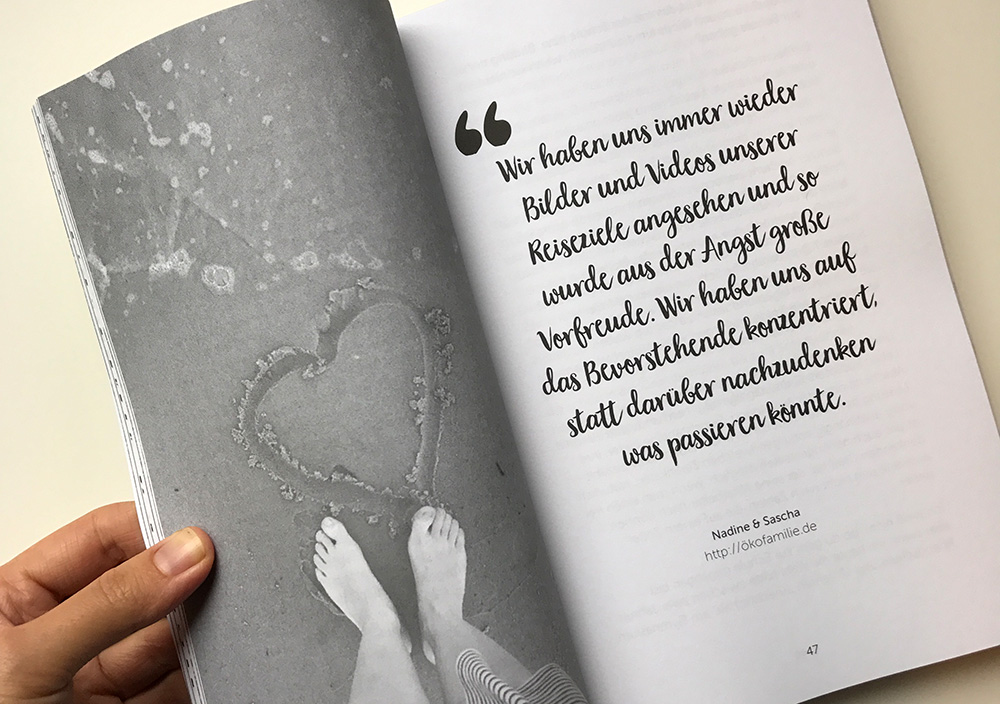 “
Wir haben uns immer wieder
Bilder und Videos unserer
Reiseziele angesehen und so
wurde aus der Angst große
Vorfreude. Wir haben uns auf
das Bevorstehende konzentriert,
statt darüber nachzudenken
was passieren könnte.
Nadine & Sascha
http://ökofamilie.de
47